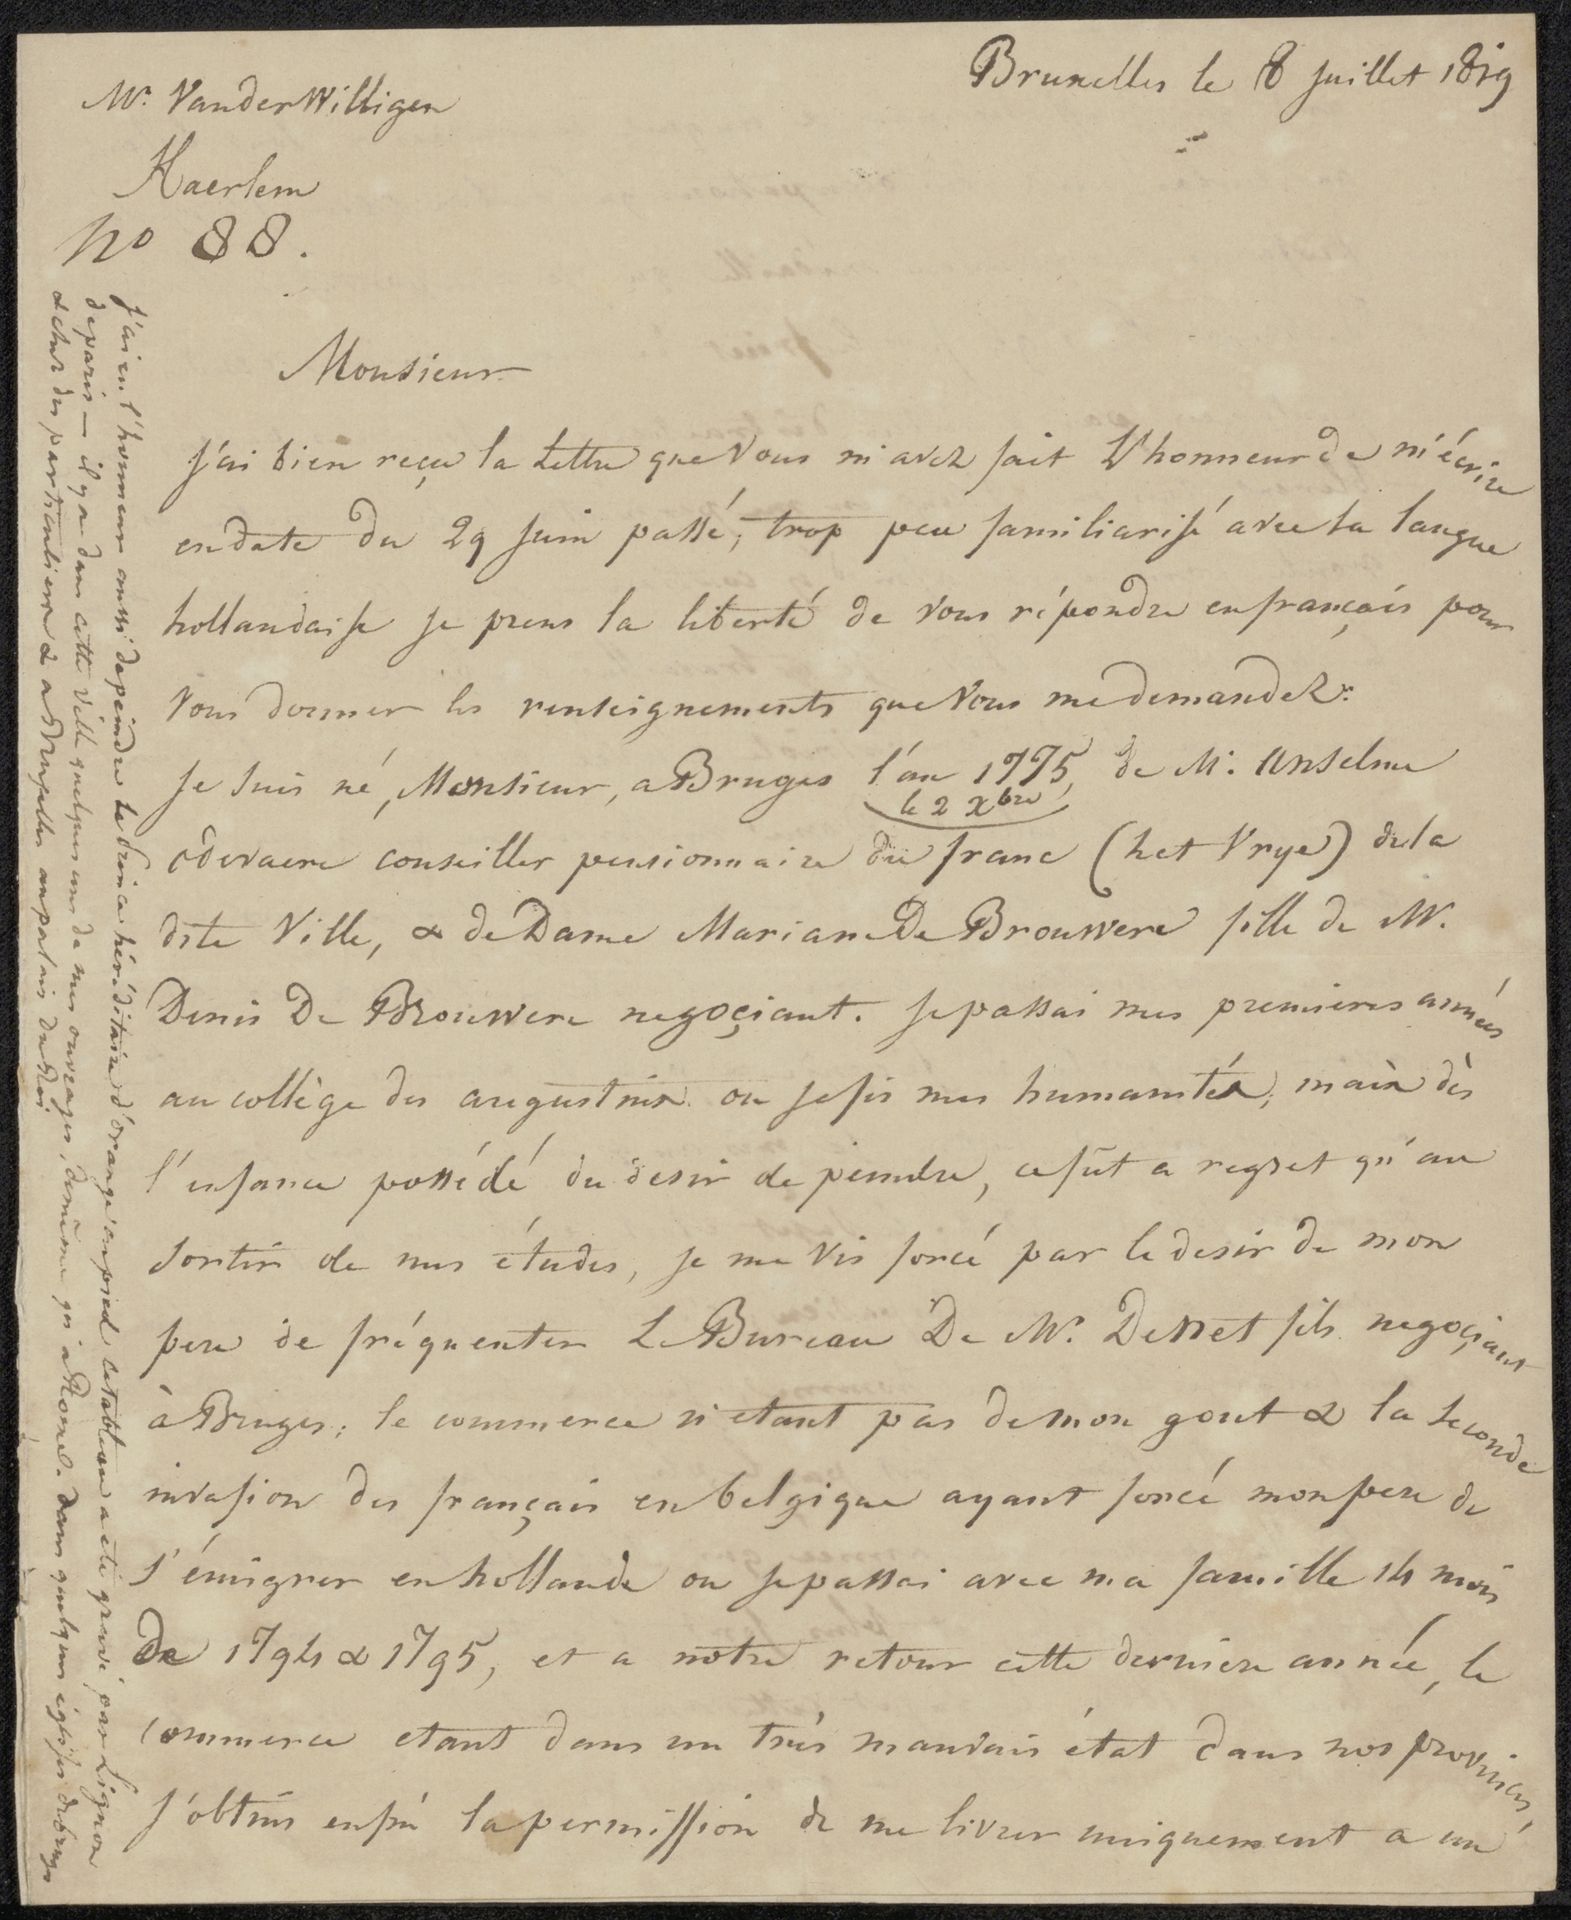 Bruxelles le 8 juillet 1819
Mr. Vander Willigen
Haerlem
no 88.
Monsieur
J'ai bien reçu la Lettre que Vous m'avez fait L'honneur de m'écrire
en date du 29 juin passé, trop peu familiarisé avec la langue
hollandaise je prens la liberté de vous répondre en français pour
vous donner les renseignements que Vous me demandez:
Je suis né, Monsieur, a Bruges l'an 1775, de Mr. Anselme
le 2 Xbre
odevaere conseiller pensionnaire du franc (het Vrye) de la
dite Ville, & de Dame Mariane De Brouwere fille de Mr.
Denis De Brouwere negoçiant. je passai mes premieres années
au collège des augustins ou je fis mes humanités, mais dès
l'enfance possédé du desir de peindre, ce fût a regret qu'au
sortir de mes études, je me vis forcé par le desir de mon
pere de fréquenter Le Bureau De Mr. De Net fils negoçiant
à Bruges; le commerce n'etant pas de mon gout & la seconde
invasion des français en belgique ayant forcé mon pere de
s'émigrer en hollande ou je passai avec ma famille 14 mois
De 1794 & 1795, et a notre retour cette derniere année, le
commerce etant dans un très mauvais état dans nos provinces,
j'obtins enfin la permission de me livrer uniquement a un
J'ai eu l'honneur aussi de peindre le Prince héréditaire d'orange en pied ce tableau a eté gravé par Lignon
de paris — il y a dans cette Ville quelques uns de mes ouvrages, de même qu'à Rome. dans quelques eglises de bruges
& chez des particuliers & a Bruxelles au palais du Roi